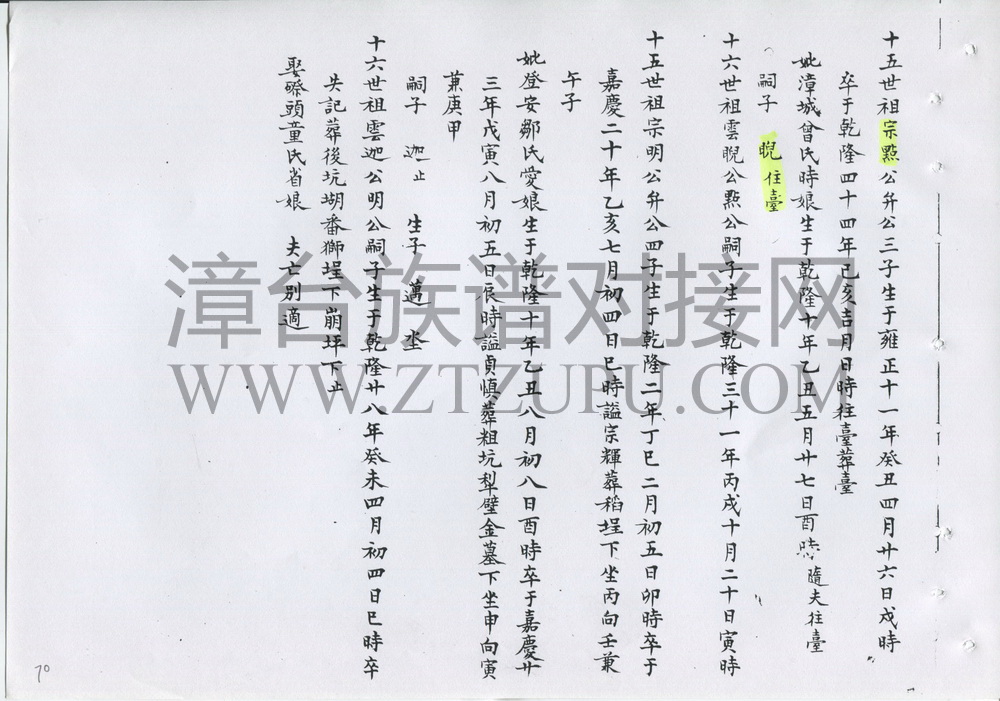 十五世祖宗點公弁公三子生于雍正十一年癸丑四月廿六日戍時
卒于乾隆四十四年己亥吉月日時往臺葬臺
妣漳城曾氏時娘生于乾隆十年乙丑五月廿七日酉時隨夫往臺
嗣子 睨住臺
十六世祖雲睨公點公嗣子生于乾隆三十一年丙戍十月二十日寅時
十五世祖宗明公弁公四子生于乾隆二年丁巳二月初五日卯時卒于
嘉慶二十年乙亥七月初四日巳時謚宗輝葬稻埕下坐丙向壬兼
午子
妣登安鄒氏愛娘生于乾隆十年乙丑八月初八日酉時卒于嘉慶廿
三年戊寅八月初五日辰時謚貞慎葬粗坑犁壁金墓下坐申向寅
兼庚甲
嗣子 迦止 生子 邁 坔
十六世祖雲迦公明公嗣子生于乾隆廿八年癸未四月初四日巳時卒
失記葬後坑湖番獅埕下崩坪下止
娶頭童氏省娘 夫亡別適
漳台族谱对接网
WWW.ZTZUPU.COM
70